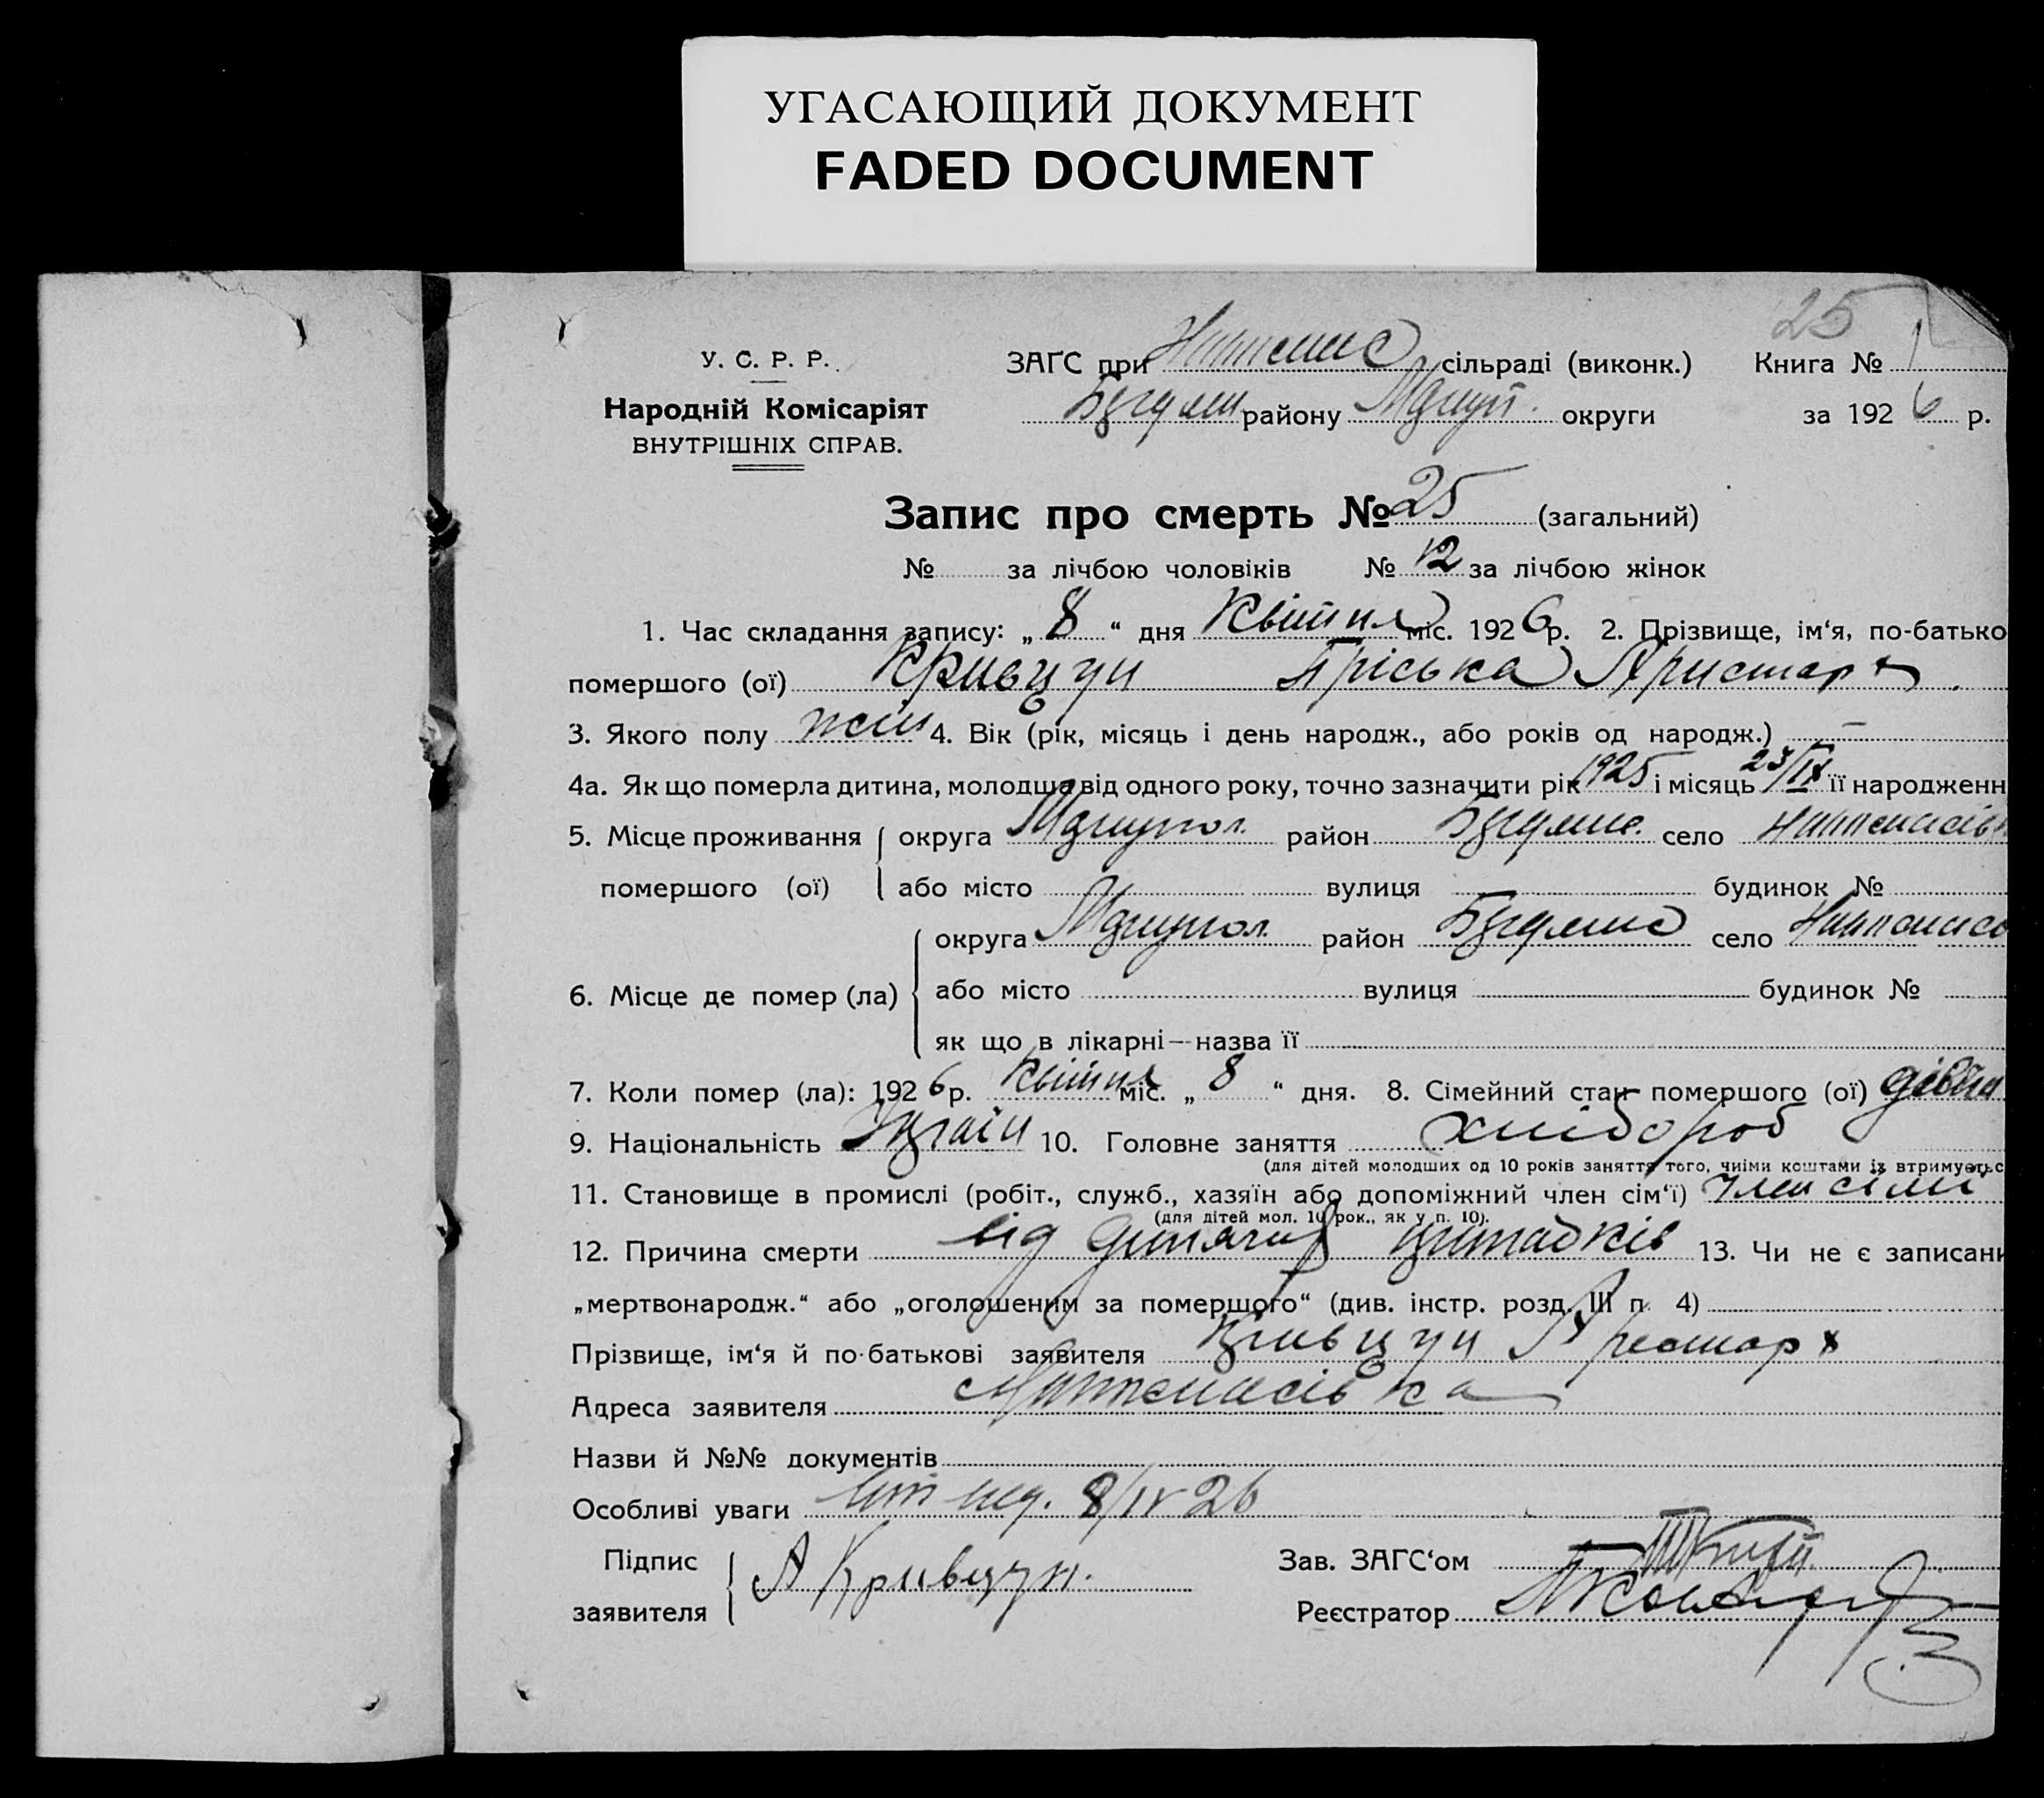 УГАСАЮЩИЙ ДОКУМЕНТ
FADED DOCUMENT
25
У. С. Р. Р.
Народній Комісаріят
ВНУТРІШНІХ СПРАВ.
ЗАҐС при сільраді (виконк.) Книга № 1
району округи за 1926 р.
Запис про смерть № 25 (загальний)
№ за лічбою чоловіків № 12 за лічбою жінок
1. Час складання запису: „8“ дня Квітня міс. 1926 р. 2. Прізвище, ім‘я, по-батько
помершого (ої) Кривцун Пріська Аристарх
3. Якого полу жін 4. Вік (рік, місяць і день народж., або років од народж.) —
4а. Як що померла дитина, молодша від одного року, точно зазначити рік 1925 і місяць 23/IX її народженн
5. Місце проживання округа район село
помершого (ої) або місто вулиця будинок №
округа район село
6. Місце де помер (ла) або місто вулиця будинок №
як що в лікарні—назва її
7. Коли помер (ла): 1926 р. Квітня міс. „8“ дня. 8. Сімейний стан помершого (ої)
9. Національність Україн 10. Головне заняття хлібороб
(для дітей молодших од 10 років заняття того, чиїми коштами їх втримуєтьс
11. Становище в промислі (робіт., служб., хазяїн або допоміжний член сім‘ї) член сімї
(для дітей мол. 10 рок., як у п. 10).
12. Причина смерти від 13. Чи не є записани
„мертвонародж.“ або „оголошеним за помершого“ (див. інстр. розд. III п. 4)
Прізвище, ім‘я й по-батькові заявителя Кривцун Аристарх
Адреса заявителя
Назви й №№ документів
Особливі уваги 8/IV 26
Підпис
заявителя А Кривцун.
Зав. ЗАГС‘ом
Реєстратор